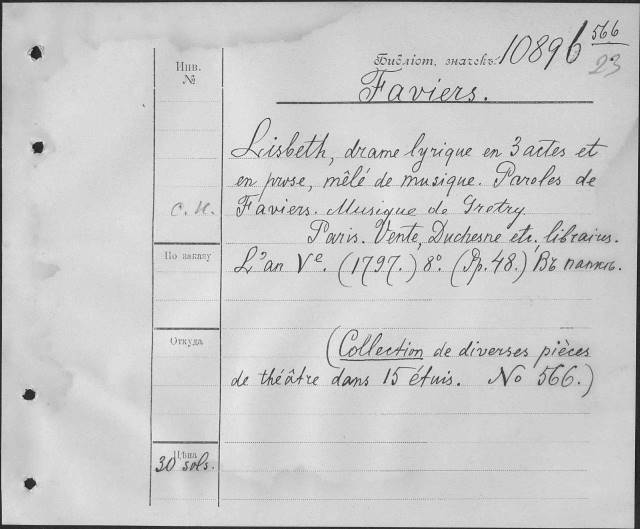 Инв.
№
Библіот. значекъ: 10896 566
23
Faviers.
Lisbeth, drame lyrique en 3 actes et
en prose, mêlé de musique. Paroles de
с. н. Faviers. Musique de Gretry.
Paris. Vente, Duchesne etc. libraires.
По заказу
L'an Ve. (1797.) 8º. (Pp. 48.) Въ папкѣ.
Откуда
(Collection de diverses pièces
de théâtre dans 15 étuis. No 566.)
Цѣна
30 sols.